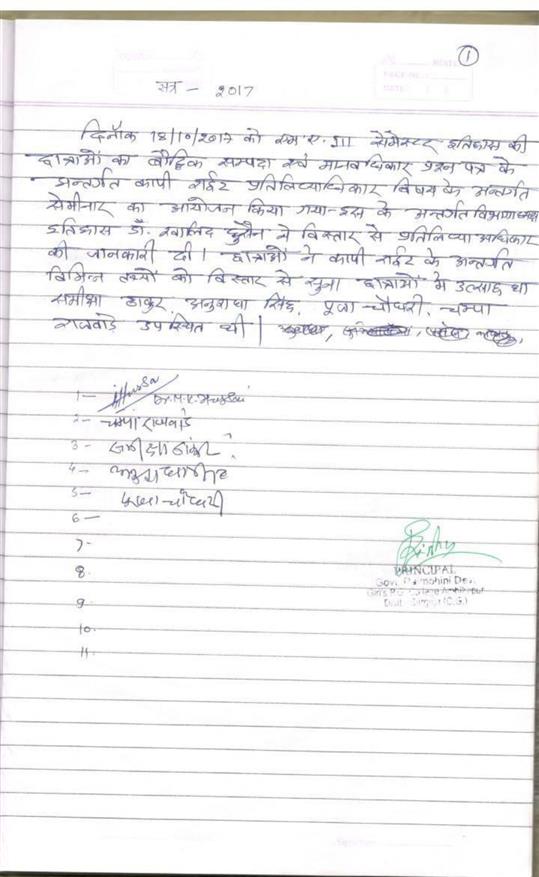 1
सत्र - 2017
दिनाँक 18/10/2017 को एम.ए. III सेमेस्टर इतिहास की
छात्राओं का बौद्धिक सम्पदा एवं मानवधिकार प्रश्न पत्र के
अन्तर्गत कापी राईट प्रतिलिप्याधिकार विषय के अन्तर्गत
सेमीनार का आयोजन किया गया - इस के अन्तर्गत विभागाध्यक्ष
इतिहास डॉ. खालिद हुसैन ने विस्तार से प्रतिलिप्याधिकार
की जानकारी दी। छात्राओं ने कापी राईट के अन्तर्गत
विभिन्न तथ्यों को विस्तार से सुना छात्राओं में उत्साह था
समीक्षा ठाकुर, अनुराधा सिंह, पूजा चौधरी, चम्पा
राजवाड़े उपस्थित थी।
1-
2- चम्पा राजवाड़े
3- समीक्षा ठाकुर
4-
5- पूजा चौधरी
6-
7-
8.
9.
10.
11.
PRINCIPAL
Govt. Rajmohini Devi
Girl's P.G. College Ambikapur
Distt. Surguja (C.G.)